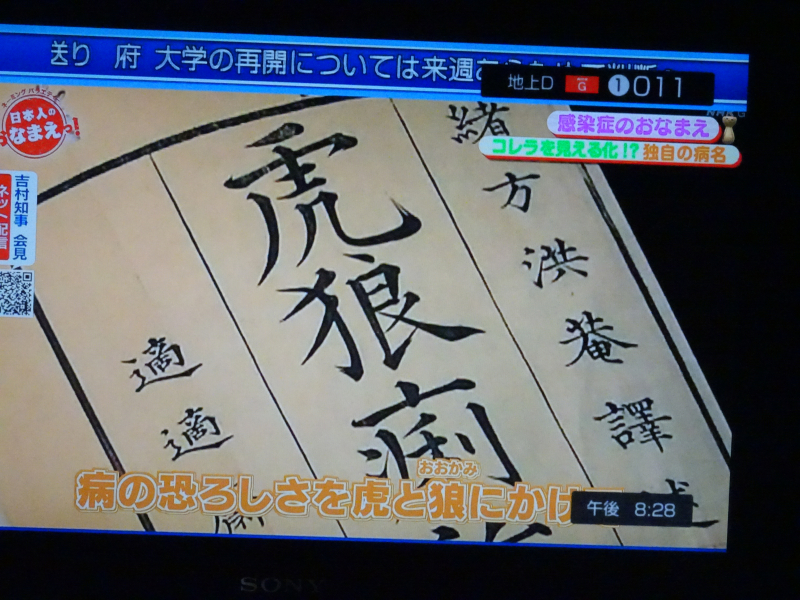 送り 府 大学の再開については来週あらためて判断
地上D G ❶011
日本人の
おなまえっ!
感染症のおなまえ
コレラを見える化!?独自の病名
吉村知事 会見
ネット配信
緒方洪菴譯述
虎狼痢治
適適
病の恐ろしさを虎と狼にかけ
おおかみ
午後 8:28
SONY